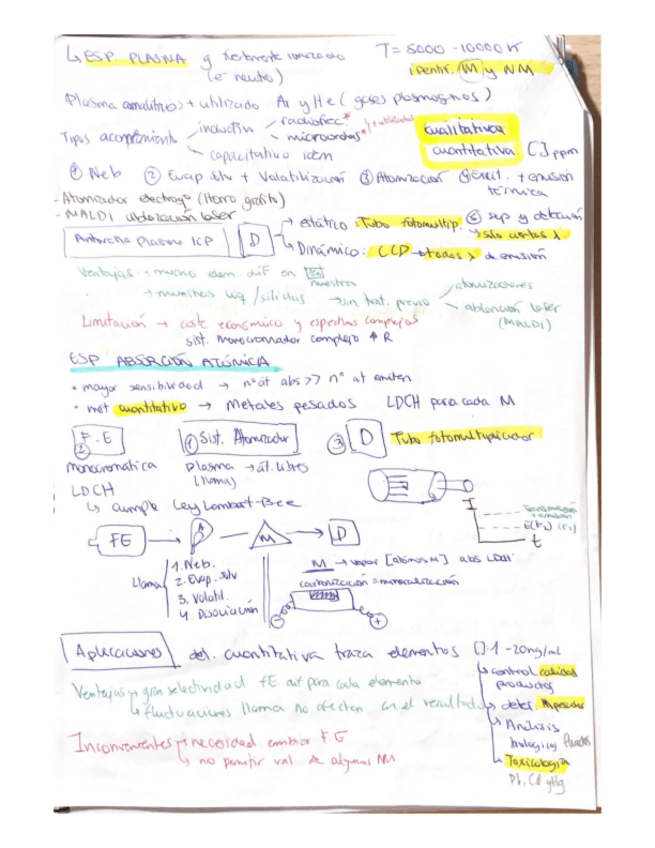 ↳ ESP PLASMA g fuertemente ionizado T= 5000 -10000 K
(e⁻ neutro) identif. M y NM
Plasma + utilizado Ar y He (gases plasmógenos)
Tipos acoplamiento inductivo radiofrec* + utilizados cualitativa
microondas* cuantitativa [ ] ppm
capacitativo idem
① Neb ② Evap. solv + Volatilización ③ Atomización ④ Excit. + emisión térmica
- Atomizador electrog (Horno grafito)
- MALDI ablación laser
Antorcha Plasma ICP D estático: Tubo fotomultip. → solo ciertas λ ⑤ sep y detección
Dinámico: CCD → todas λ de emisión
Ventajas → mucho elem. dif en muestra
→ muestras liq / sólidas → sin trat. previo atomizadores
ablación laser (MALDI)
Limitación → coste económico y espectros complejos
sist. monocromador complejo ↑ R
ESP ABSORCIÓN ATÓMICA
• mayor sensibilidad → nº át abs >> nº at emiten
• met cuantitativo → Metales pesados LDCH para cada M
F.E ② ① Sist. Atomizador ③ D Tubo fotomultiplicador
monocromática Plasma → át. libres
LDCH (llama)
↳ cumple Ley Lambert-Beer
I
t
FE M D
Llama 1. Neb.
2. Evap. solv
3. Volatil.
4. Disociación
M → vapor [átomos M] abs LDCH
carbonización = mineralización
⊖ ⊕
Aplicaciones det. cuantitativa traza elementos [ ] 1 -20ng/ml
↳ control calidad productos
Ventajas → gran selectividad F.E. dif para cada elemento
↳ fluctuaciones llama no afectan en el resultado
↳ deter. M pesados
↳ Análisis biológicos
↳ Toxicología
Pb, Cd y Hg
Inconvenientes → necesidad cambiar F.E
↳ no permitir val de algunos NM